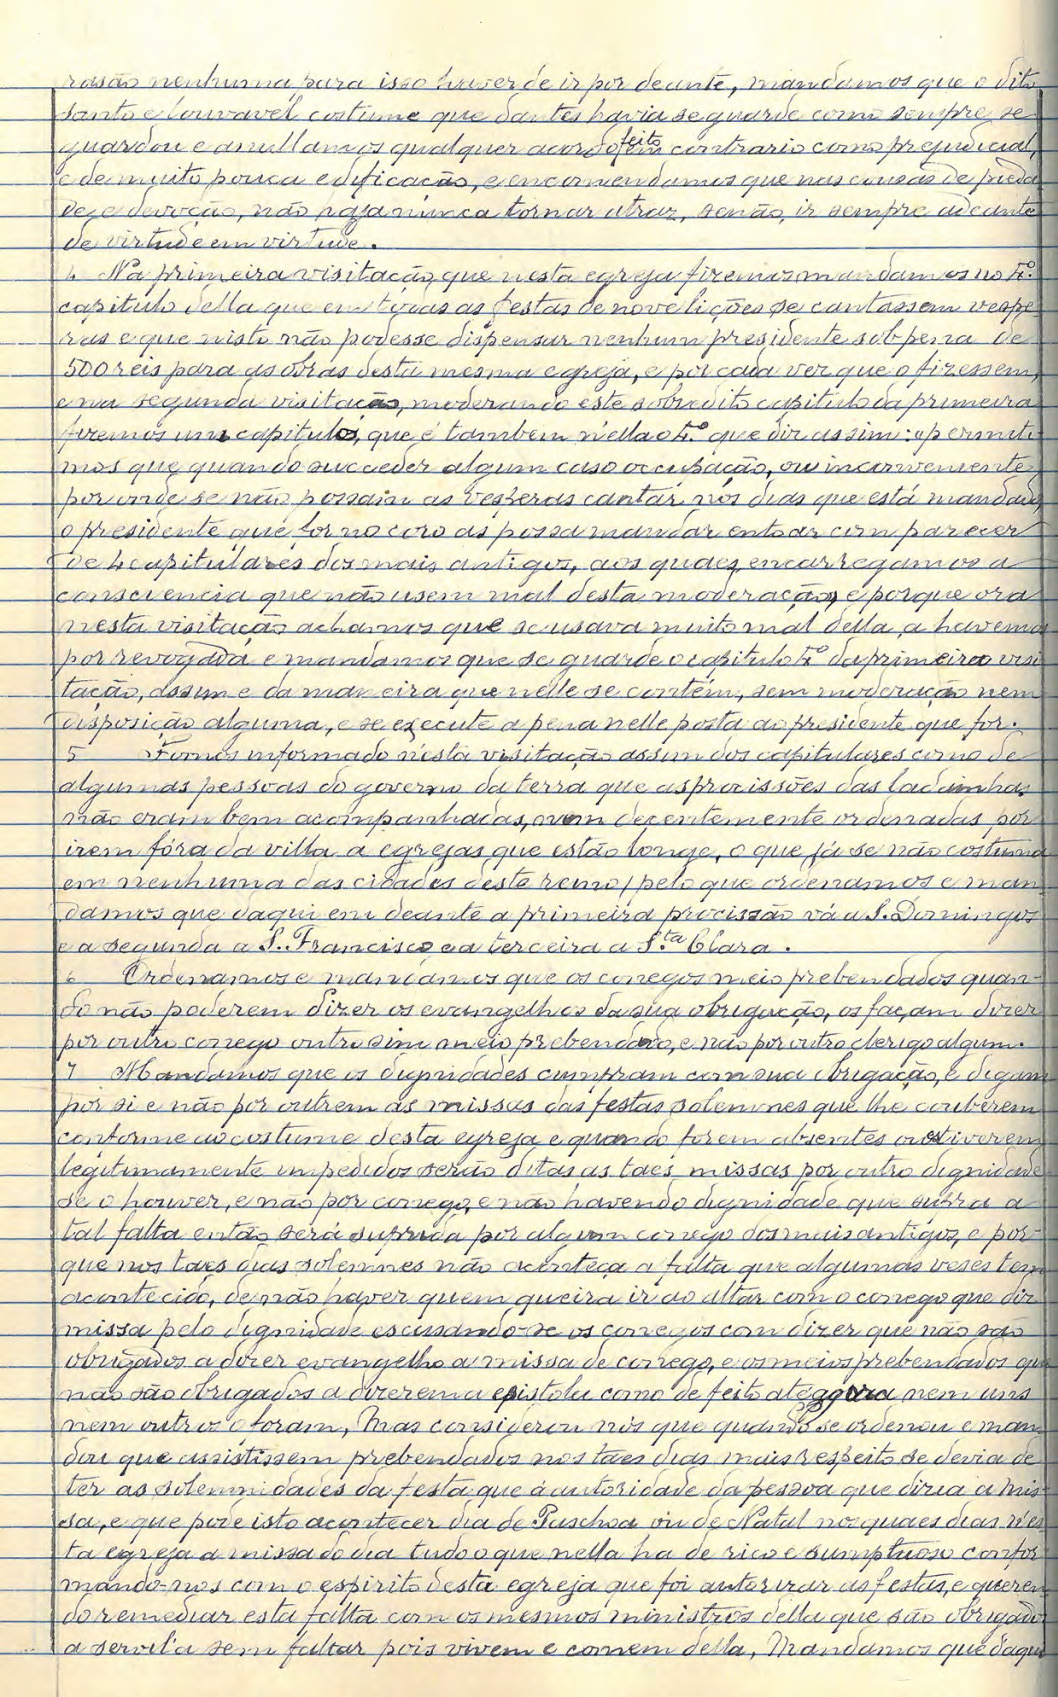 rasão nenhuma para isso haver de ir por deante, mandamos que o dito
santo e louvavel costume que dantes havia se guarde como sempre se
guardou e anullamos qualquer acordo feito em contrario como prejudicial,
e de muito pouca edificação, e encomendamos que nas cousas de pieda
de, e devoção, não haja nunca tornar atraz, senão, ir sempre adeante
de virtude em virtude.
4 Na primeira visitação, que nesta egreja fizemos mandamos no 4.º
capitulo della que em todas as festas de nove lições se cantassem vespe
ras e que nisto não podesse dispensar nenhum presidente sob pena de
500 reis para as obras desta mesma egreja, e por cada vez que o fizessem,
e na segunda visitação, moderando este sobredito capitulo da primeira
fizemos um capitulo, que é tambem n'ella o 4.º que diz assim: permiti
mos que quando succeder algum caso occupação, ou inconveniente
por onde se não possam as vesperas cantar nos dias que está mandado
o presidente que for no coro as possa mandar entoar com parecer
de 4 capitulares dos mais antigos, aos quaes encarregamos a
consciencia que não usem mal desta moderação, e porque ora
nesta visitação achamos que se usava muito mal della, a havemos
por revogada e mandamos que se guarde o capitulo 4.º da primeira visi
tação, assim e da maneira que nelle se contém, sem moderação nem
disposição alguma, e se execute a pena nelle posta ao presidente que for.
5 Fomos informado nesta visitação assim dos capitulares como de
algumas pessoas do governo da terra que as procissões das ladainhas
não eram bem acompanhadas, nem decentemente ordenadas por
irem fóra da villa a egrejas que estão longe, o que já se não costuma
em nenhuma das cidades deste reino, pelo que ordenamos e man
damos que daqui em deante a primeira procissão vá a S. Domingos
e a segunda a S. Francisco e a terceira a S.ta Clara.
6 Ordenamos e mandamos que os conegos meio prebendados quan-
do não poderem dizer os evangelhos da sua obrigação, os façam dizer
por outro conego outrosim meio prebendado, e não por outro clerigo algum.
7 Mandamos que os dignidades cumpram com sua obrigação, e digam
por si e não por outrem as missas das festas solemnes que lhe couberem
conforme ao costume desta egreja e quando forem absentes ou estiverem
legitimamente impedidos serão ditas as taes missas por outro dignidade
se o houver, e não por conego, e não havendo dignidade que supra a
tal falta então será suprida por algum conego dos mais antigos, e por-
que nos taes dias solemnes não aconteça a falta que algumas veses tem
acontecido, de não haver quem queira ir ao altar com o conego que diz
missa pelo dignidade escusando-se os conegos com dizer que não são
obrigados a dizer evangelho a missa de conego, e os meios prebendados que
não são obrigados a dizerem a epistola como de feito ate agora nem uns
nem outros o foram, Mas considerou nós que quando se ordenou e man
dou que assistissem prebendados nos taes dias mais respeito se devia de
ter as solemnidades da festa que á autoridade da pessoa que dizia a mis
sa, e que pode isto acontecer dia de Paschoa ou de Natal nos quaes dias n'es
ta egreja a missa do dia tudo o que nella ha de rico e sumptuoso confor
mando-nos com o espirito desta egreja que foi autorizar as festas, e queren
do remediar esta falta com os mesmos ministros della que são obrigados
a servil'a sem faltar pois vivem e comem della, Mandamos que daqui